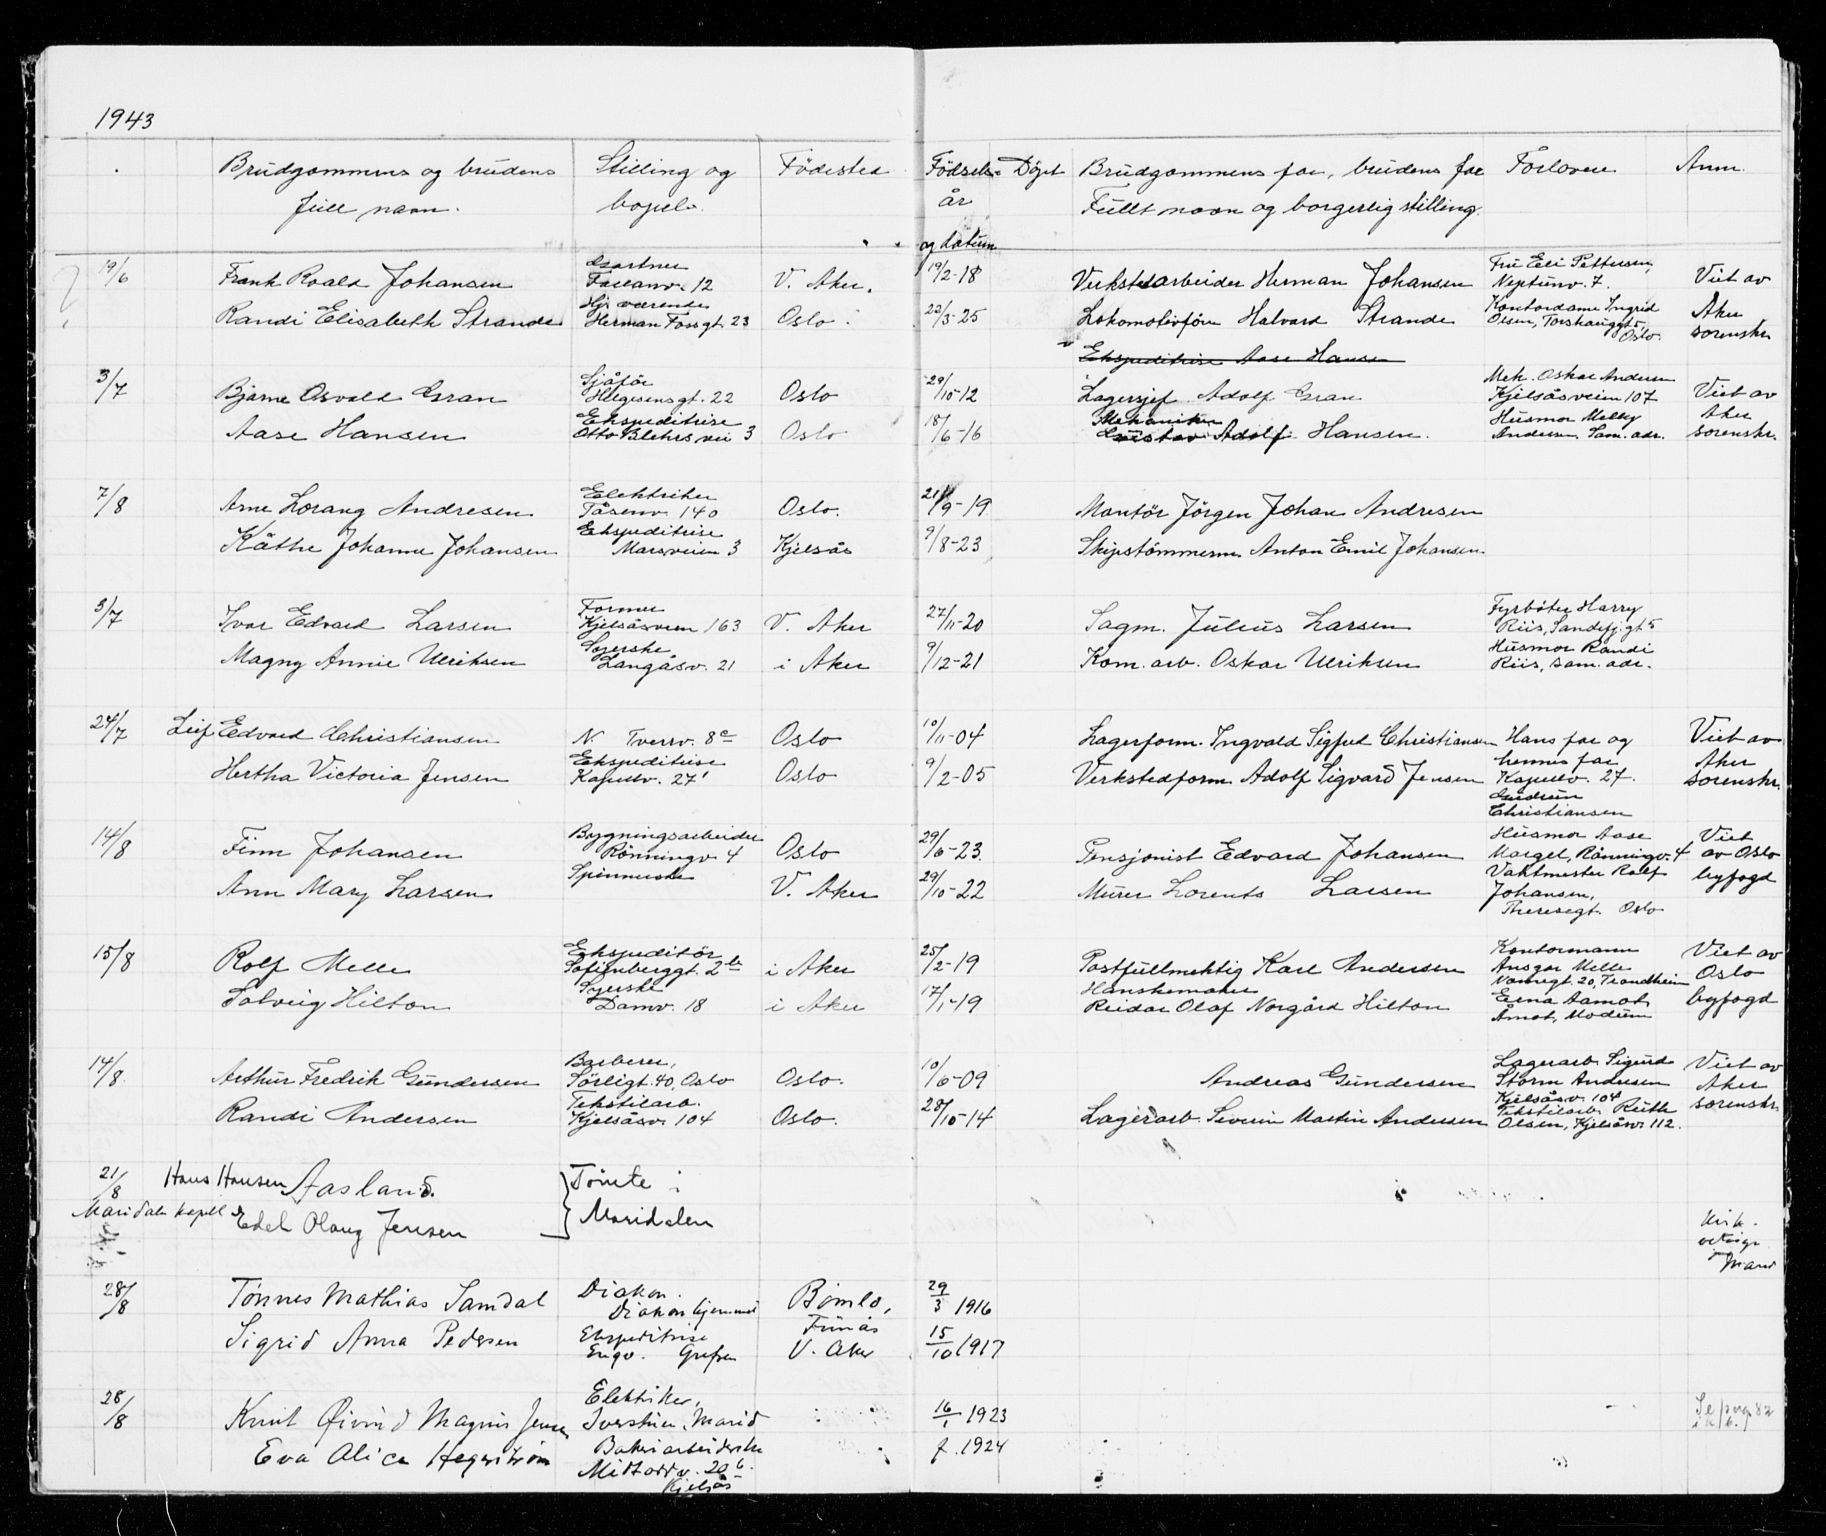 1943
Brudgommens og brudens Stilling og Födested Födsels- Döpt Brudgommens far, brudens far Forlovere Anm.
full navn. bopel. år Fullt navn og borgerlig stilling.
og datum
19/6 Frank Roald Johansen Gartner 12 V. Aker. 19/2-18 Verkstedarbeider Herman Johansen Fru Eli Pettersen, Neptunv. 7. Viet av
Randi Elisabeth Strande Hj. værende Herman Fossgt. 23 Oslo. 22/3-25 Lokomotivför Halvard Strande Kontordame Ingrid Olsen, Torshauggt 5, Oslo. Aker sorenskr.
Ekspeditrise Aase Hansen
3/7 Bjarne Osvald Gran Sjåför Helgesensgt. 22 Oslo 29/10-12 Lagersjef Adolf Gran Mek. Oskar Andersen Kjelsåsveien 107 Viet av
Aase Hansen Ekspeditrise Otto Blehrs vei 3 Oslo 18/6-16 Mekaniker Gustav Adolf Hansen. Husmor Melby Andersen, Sam. adr. Aker sorenskr.
7/8 Arne Lorang Andresen Elektriker Tåsenv. 140 Oslo. 21/9-19 Montör Jörgen Johan Andresen
Käthe Johanne Johansen Ekspeditrise Marsveien 3 Kjelsås 9/8-23 Skipstömmerm. Anton Emil Johansen.
3/7 Ivar Edvard Larsen Former Kjelsåsveien 163 V. Aker 27/11-20 Sagm. Julius Larsen Fyrböter Harry Riis, Sandefj.gt 5
Magny Annie Ulriksen Syerske Langåsv. 21 i Aker 9/12-21 Kom. arb. Oskar Ulriksen Husmor Randi Riis, sam. adr.
24/7 Leif Edvard Christiansen N. Tverrv. 8c Oslo 10/11-04 Lagerform. Ingvald Sigfred Christiansen Hans far og Viet av
Hertha Victoria Jensen Ekspeditrise Kapellv. 27 Oslo 9/2-05 Verkstedform. Adolf Sigvard Jensen hennes far Kapellv. 27. Aker sorenskr.
Gudrun Christiansen
14/8 Finn Johansen Bygningsarbeider Rönningv. 4 Oslo 29/6-23. Pensjonist Edvard Johansen Husmor Aase Margel, Rönningv. 4 Viet av Oslo
Ann Mary Larsen Spinnerske V. Aker 29/10-22 Murer Lorents Larsen Vaktmester Rolf Johansen, Theresegt. Oslo byfogd
15/8 Rolf Melle Ekspeditör Sofienberggt. 2b i Aker 25/2-19 Postfullmektig Karl Andersen Kontormann Ansgar Melle 20, Trondheim Viet av Oslo
Solveig Hilton Syerske Damv. 18 i Aker 17/1-19 Hanskemaker Reidar Olaf Norgård Hilton Erna Aamot, Åmot, Modum byfogd
14/8 Arthur Fredrik Gundersen Barberer, Sörligt. 40, Oslo Oslo. 10/6-09 Andreas Gundersen Lagerarb. Sigurd Storm Andersen Kjelsåsv. 104 Viet av Aker
Randi Andersen Tekstilarb. Kjelsåsv. 104 Oslo. 28/10-14 Lagerarb. Severin Martin Andersen Tekstilarb. Ruth Olsen, Kjelsåsv. 112. sorenskr.
21/8 Hans Hansen Aasland. Tömte i
Maridalen kapell Edel Olaug Jensen Maridalen
28/8 Tønnes Mathias Samdal Diakon. Diakonhjemmet Bømlo, 29/3 1916
Sigrid Anna Pedersen Ekspeditrise Engv. Grefsen V. Aker 15/10 1917
28/8 Knut Øivind Magnus Jensen Elektriker, Marid 16/1 1923
Eva Alice Hegerstrøm Bakeriarbeiderske Midtoddv. 20b. Kjelsås f. 1924